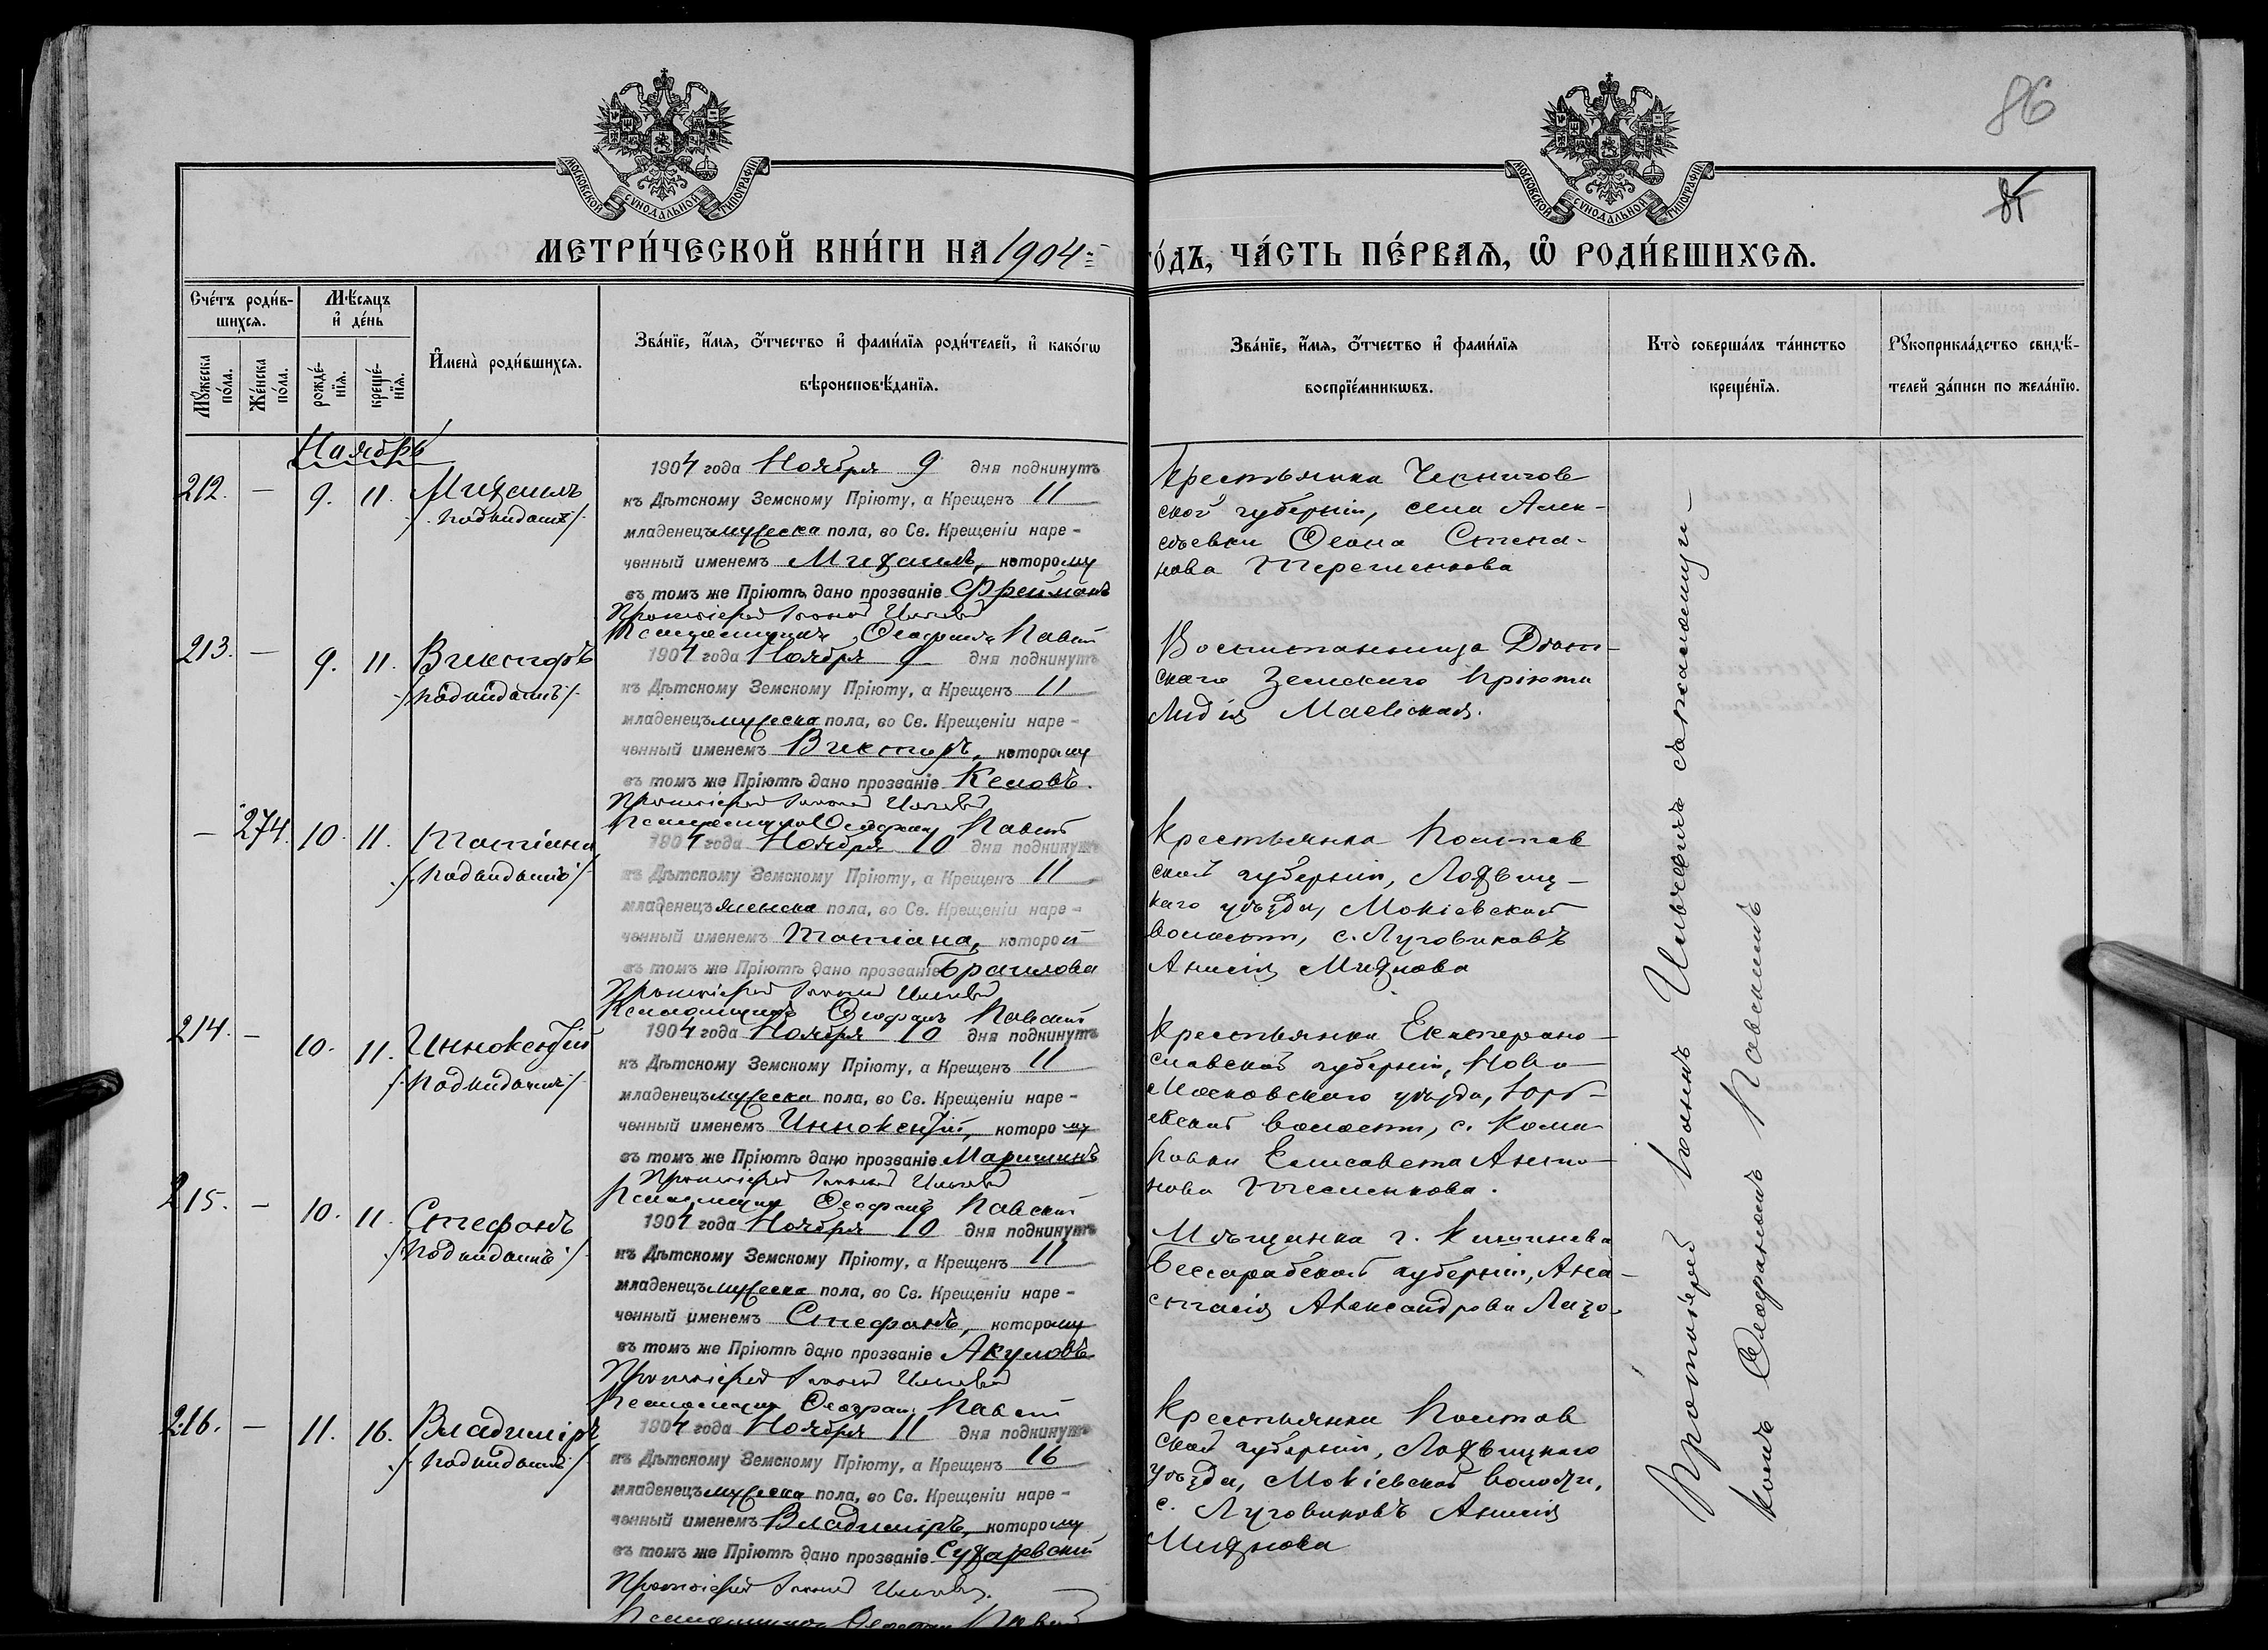 86
85
МОСКОВСКОЙ СУНОДАЛЬНОЙ ТИПОГРАФІИ
МОСКОВСКОЙ СУНОДАЛЬНОЙ ТИПОГРАФІИ
МЕТРИ́ЧЕСКОЙ КНИ́ГИ НА 1904
го́дъ, ЧА́СТЬ ПЕ́РВАѦ, Ѽ РОДИ́ВШИХСѦ.
Сче́тъ роди́в-
шихсѧ.
Мѣ́сѧцъ
и҆ де́нь
Мꙋ́жеска
по́ла.
Же́нска
по́ла.
рожде́-
нїѧ.
креще́-
нїѧ.
И҆мена̀ роди́вшихсѧ.
Зва́нїе, и҆́мѧ, ѻ҆́тчество и҆ фами́лїѧ роди́телей, и҆ како́гѡ
вѣроисповѣ́данїѧ.
Зва́нїе, и҆́мѧ, ѻ҆́тчество и҆ фами́лїѧ
воспрїе́мникѡвъ.
Кто̀ соверша́лъ та́инство
креще́нїѧ.
Рꙋкоприкла́дство свидѣ́-
телей за́писи по жела́нїю.
Ноябрь
212. — 9. 11. Михаилъ
/подкидышъ/
1904 года Ноября 9 дня подкинутъ
къ Дѣтскому Земскому Пріюту, а Крещенъ 11
младенецъ мужеска пола, во Св. Крещеніи наре-
ченный именемъ Михаилъ, которому
въ томъ же Пріютѣ дано прозваніе Фрейманъ
Протоіерей Іоаннъ
Псаломщикъ Ѳеофанъ
Крестьянка Чернигов
ской губерніи, села Алек-
сѣевки Ѳеана Степа-
нова Терещенкова
213. — 9. 11. Викторъ
/подкидышъ/
1904 года Ноября 9 дня подкинутъ
къ Дѣтскому Земскому Пріюту, а Крещенъ 11
младенецъ мужеска пола, во Св. Крещеніи наре-
ченный именемъ Викторъ, которому
въ томъ же Пріютѣ дано прозваніе Келовъ.
Протоіерей Іоаннъ
Псаломщикъ Ѳеофанъ
Воспитанница Дѣт-
скаго Земскаго Пріюта
Лидія Маевская.
— 274. 10. 11. Татіана
/подкидышъ/
1904 года Ноября 10 дня подкинутъ
къ Дѣтскому Земскому Пріюту, а Крещенъ 11
младенецъ женска пола, во Св. Крещеніи наре-
ченный именемъ Татіана, которой
въ томъ же Пріютѣ дано прозваніе Браилова
Протоіерей Іоаннъ
Псаломщикъ Ѳеофанъ
Крестьянка Полтав
ской губерніи, Лохвиц-
каго уѣзда, Мокіевской
волости, с. Луговиковъ
Анисія Михнова
214. — 10. 11. Иннокентій
/подкидышъ/
1904 года Ноября 10 дня подкинутъ
къ Дѣтскому Земскому Пріюту, а Крещенъ 11
младенецъ мужеска пола, во Св. Крещеніи наре-
ченный именемъ Иннокентій, которому
въ томъ же Пріютѣ дано прозваніе Маришинъ
Протоіерей Іоаннъ
Псаломщикъ Ѳеофанъ
Крестьянка Екатерино-
славской губерніи, Ново-
московскаго уѣзда, Юрь-
евской волости, с. Кома
ровки Елисавета Анто-
нова Тесленкова.
215. — 10. 11. Стефанъ
/подкидышъ/
1904 года Ноября 10 дня подкинутъ
къ Дѣтскому Земскому Пріюту, а Крещенъ 11
младенецъ мужеска пола, во Св. Крещеніи наре-
ченный именемъ Стефанъ, которому
въ томъ же Пріютѣ дано прозваніе Акуловъ
Протоіерей Іоаннъ
Псаломщикъ Ѳеофанъ
Мѣщанка г. Кишинева
Бессарабской губерніи, Ана-
стасія Александрова Лазо
216. — 11. 16. Владиміръ
/подкидышъ/
1904 года Ноября 11 дня подкинутъ
къ Дѣтскому Земскому Пріюту, а Крещенъ 16
младенецъ мужеска пола, во Св. Крещеніи наре-
ченный именемъ Владиміръ, которому
въ томъ же Пріютѣ дано прозваніе Сухаревскій
Протоіерей Іоаннъ
Псаломщикъ Ѳеофанъ
Крестьянка Полтав
ской губерніи, Лохвицкаго
уѣзда, Мокіевской волости,
с. Луговиковъ Анисія
Михнова
Протоіерей Іоаннъ съ псаломщи-
комъ Ѳеофаномъ